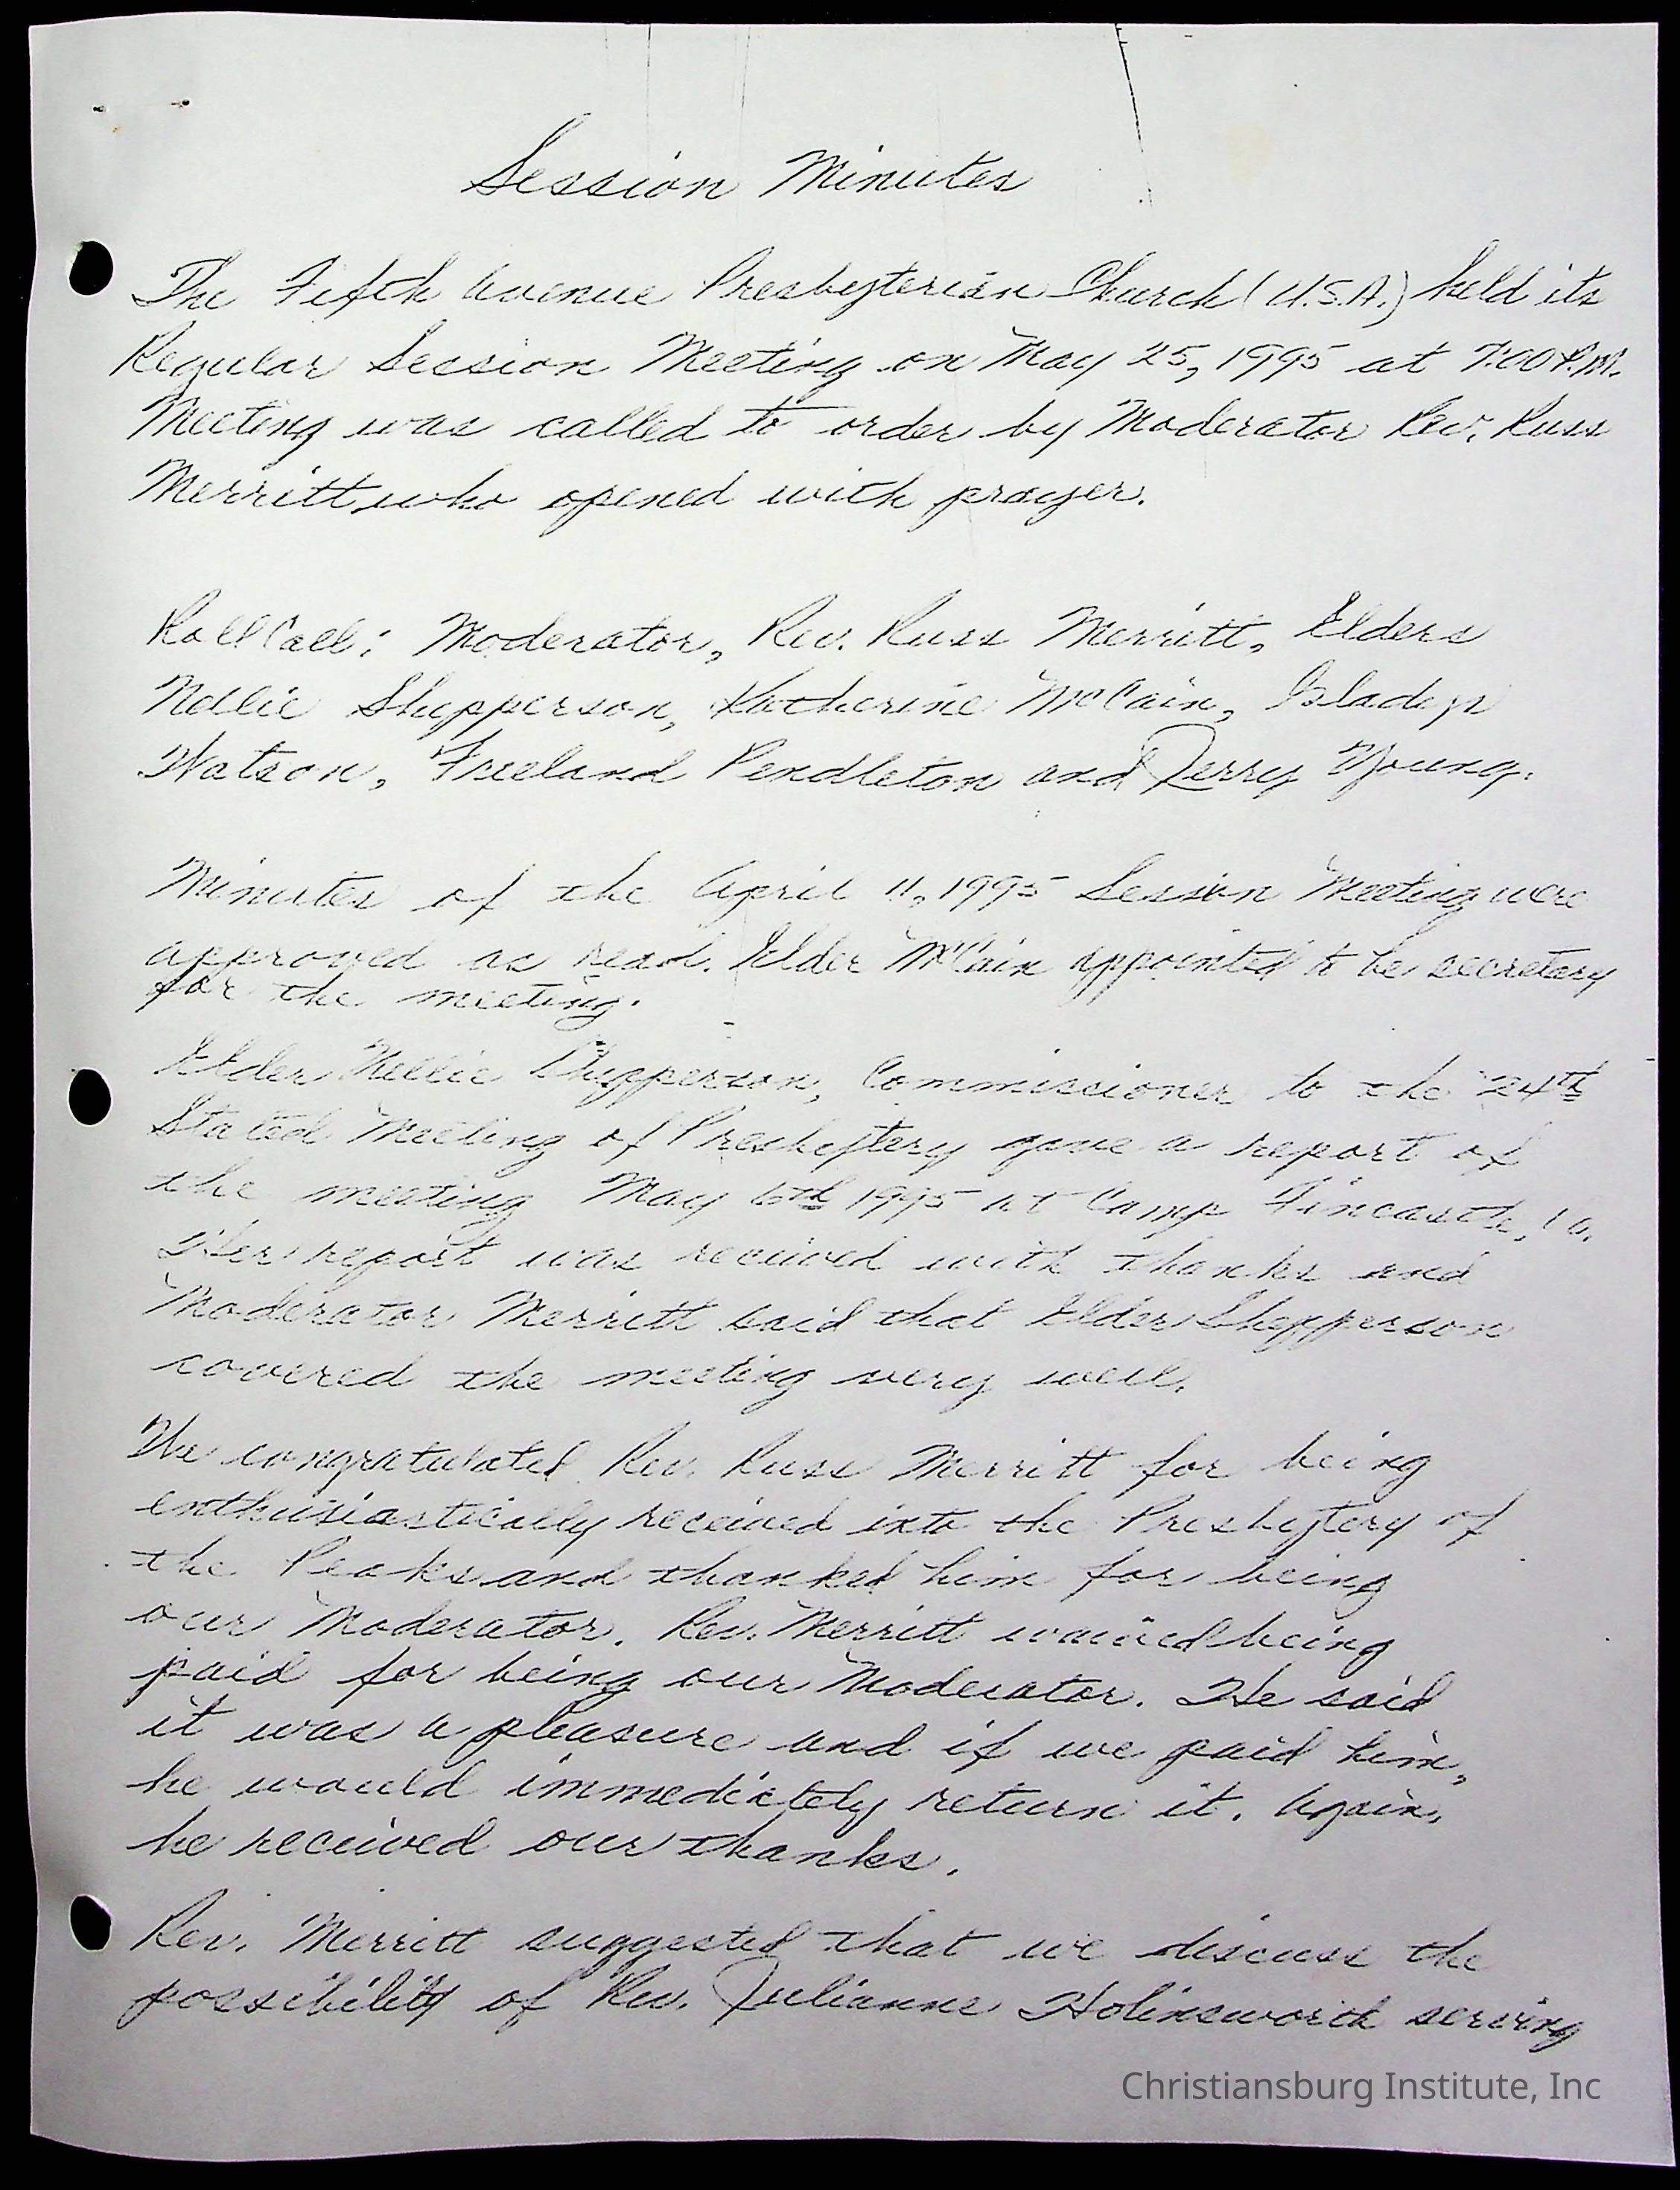 Session Minutes
The Fifth Avenue Presbyterian Church (U.S.A.) held its
Regular Session Meeting on May 25, 1995 at 7:00 P.M.
Meeting was called to order by Moderator Rev. Russ
Merritt, who opened with prayer.
Roll Call: Moderator, Rev. Russ Merritt, Elders
Nellie Shepperson, Katherine McCain, Gladys
Watson, Freeland Pendleton and Jerry Young.
Minutes of the April 11, 1995 Session Meeting were
approved as read. Elder McCain appointed to be secretary
for the meeting.
Elder Nellie Shepperson, Commissioner to the 24th
Stated Meeting of Presbytery gave a report of
the meeting May 6th 1995 at Camp Fincastle, Va.
Her report was received with thanks and
Moderator Merritt said that Elder Shepperson
covered the meeting very well.
We congratulated Rev. Russ Merritt for being
enthusiastically received into the Presbytery of
the Peaks and thanked him for being
our Moderator. Rev. Merritt waived being
paid for being our Moderator. He said
it was a pleasure and if we paid him,
he would immediately return it. Again,
he received our thanks.
Rev. Merritt suggested that we discuss the
possibility of Rev. Julianne Holinsworth serving
Christiansburg Institute, Inc